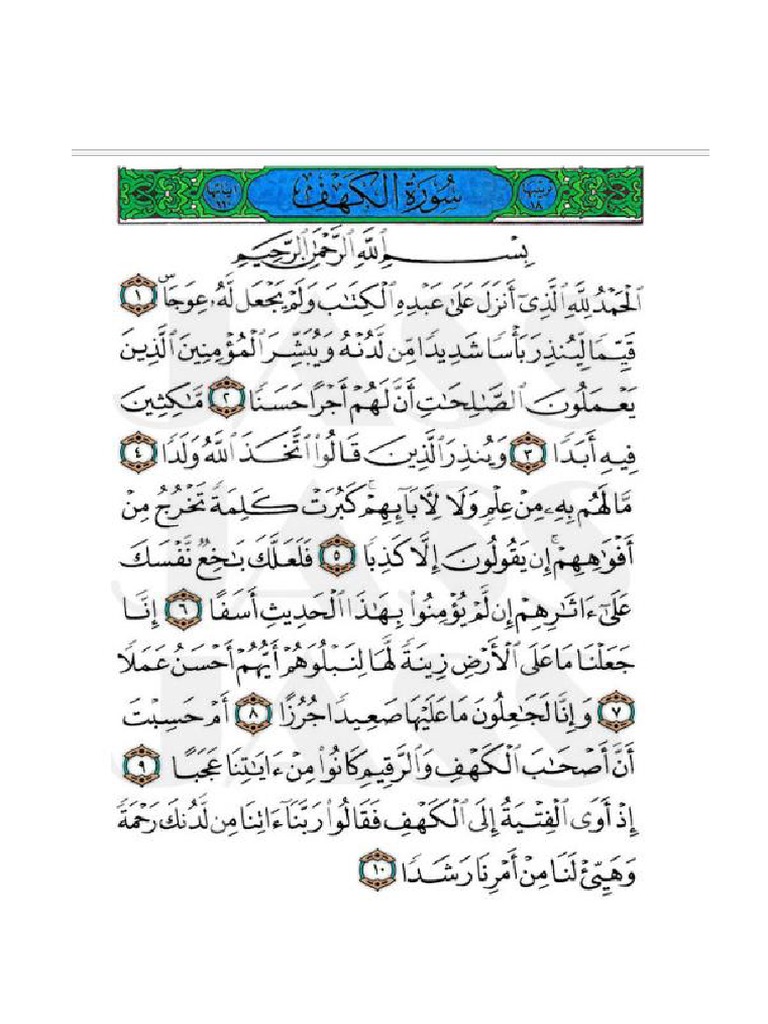 ترتيبها ١٨ سُورَةُ الكَهْفِ آياتها ١١٠
بِسْمِ ٱللَّهِ ٱلرَّحْمَٰنِ ٱلرَّحِيمِ
ٱلْحَمْدُ لِلَّهِ ٱلَّذِىٓ أَنزَلَ عَلَىٰ عَبْدِهِ ٱلْكِتَٰبَ وَلَمْ يَجْعَل لَّهُۥ عِوَجَاۜ ١
قَيِّمًا لِّيُنذِرَ بَأْسًا شَدِيدًا مِّن لَّدُنْهُ وَيُبَشِّرَ ٱلْمُؤْمِنِينَ ٱلَّذِينَ
يَعْمَلُونَ ٱلصَّٰلِحَٰتِ أَنَّ لَهُمْ أَجْرًا حَسَنًا ٢ مَّٰكِثِينَ
فِيهِ أَبَدًا ٣ وَيُنذِرَ ٱلَّذِينَ قَالُوا۟ ٱتَّخَذَ ٱللَّهُ وَلَدًا ٤
مَّا لَهُم بِهِۦ مِنْ عِلْمٍ وَلَا لِءَابَآئِهِمْ ۚ كَبُرَتْ كَلِمَةً تَخْرُجُ مِنْ
أَفْوَٰهِهِمْ ۚ إِن يَقُولُونَ إِلَّا كَذِبًا ٥ فَلَعَلَّكَ بَٰخِعٌ نَّفْسَكَ
عَلَىٰٓ ءَاثَٰرِهِمْ إِن لَّمْ يُؤْمِنُوا۟ بِهَٰذَا ٱلْحَدِيثِ أَسَفًا ٦ إِنَّا
جَعَلْنَا مَا عَلَى ٱلْأَرْضِ زِينَةً لَّهَا لِنَبْلُوَهُمْ أَيُّهُمْ أَحْسَنُ عَمَلًا
٧ وَإِنَّا لَجَٰعِلُونَ مَا عَلَيْهَا صَعِيدًا جُرُزًا ٨ أَمْ حَسِبْتَ
أَنَّ أَصْحَٰبَ ٱلْكَهْفِ وَٱلرَّقِيمِ كَانُوا۟ مِنْ ءَايَٰتِنَا عَجَبًا ٩
إِذْ أَوَى ٱلْفِتْيَةُ إِلَى ٱلْكَهْفِ فَقَالُوا۟ رَبَّنَآ ءَاتِنَا مِن لَّدُنكَ رَحْمَةً
وَهَيِّئْ لَنَا مِنْ أَمْرِنَا رَشَدًا ١٠
JASS
JASS
JASS